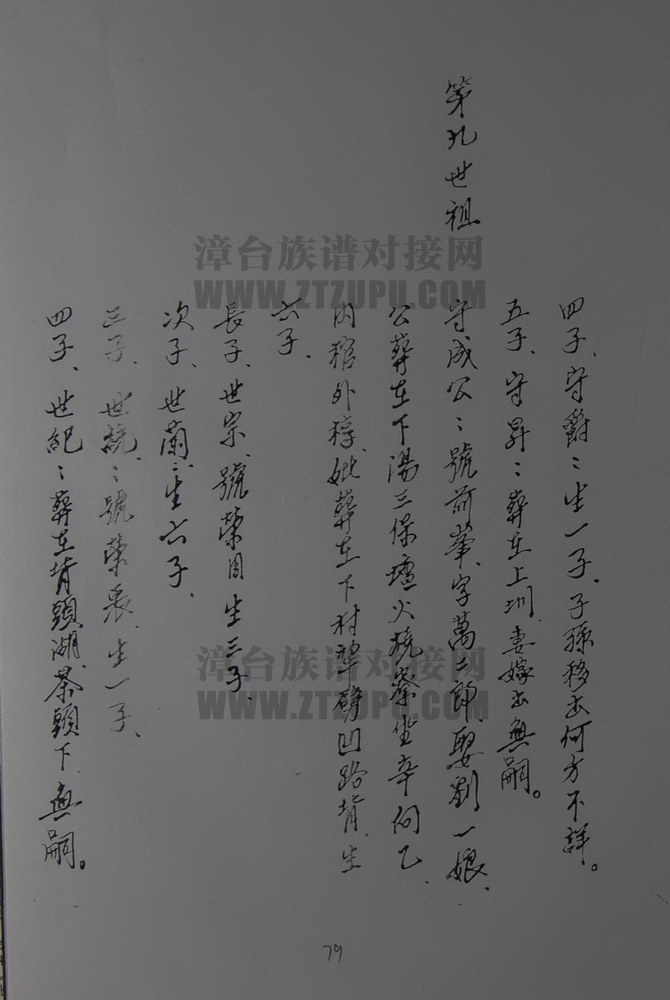 四子、守爵：生一子、子孫移去何方不詳。
五子、守昇：葬在上圳、妻嫁出無嗣。
第九世祖
守成公：號前峯、字萬二郎、娶劉一娘、
公葬在下湯三保壇火燒寮坐辛向乙、
內棺外椁、妣葬在下村犂礕凹路背、生
六子、
長子、世宗、號榮周生三子、
次子、世蘭：生六子、
三子、世統：號榮表、生一子、
四子、世紀：葬在背頭湖茶頭下、無嗣。
79
漳台族谱对接网
WWW.ZTZUPU.COM
漳台族谱对接网
WWW.ZTZUPU.COM